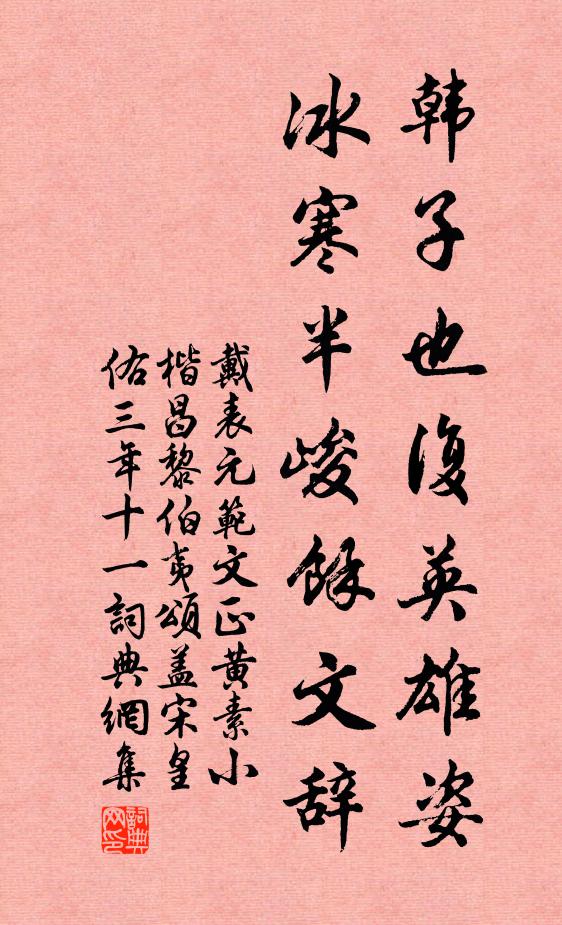 韩子也復英雄姿
冰寒半峻餘文辞
戴表元範文正黄素小
楷昌黎伯夷頌盖宋皇
佑三年十一詞典網集
詞典网印